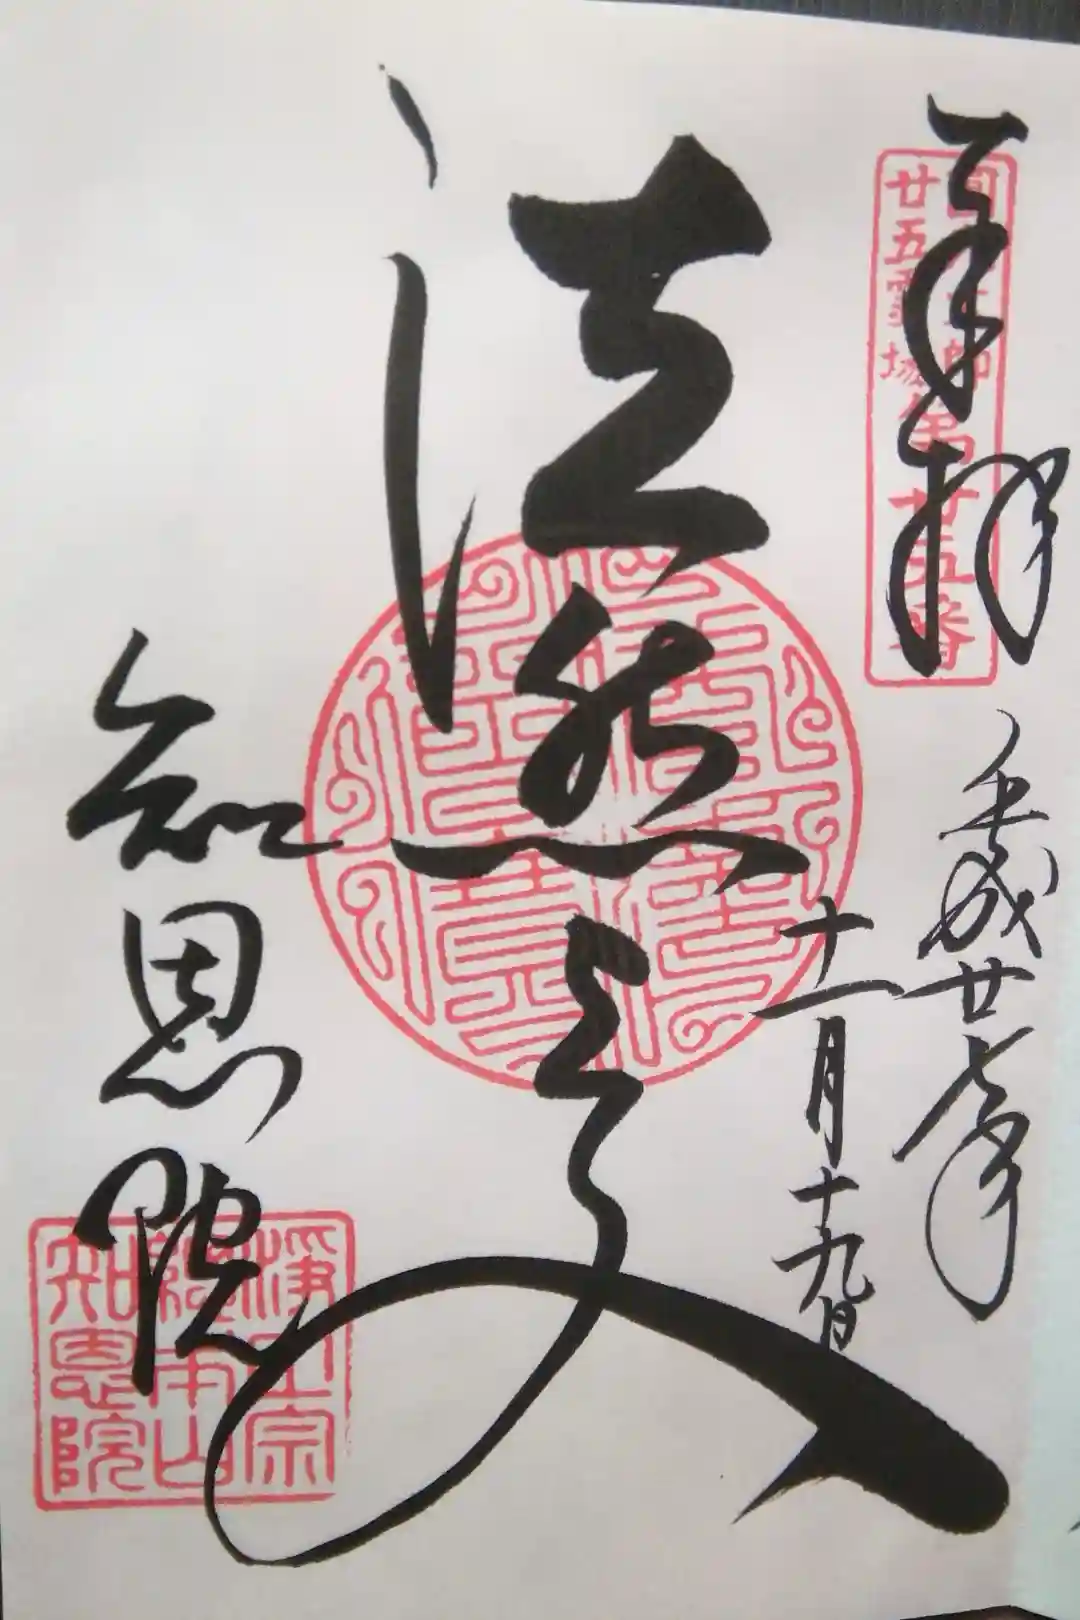 奉拝
圓光大師
廿五霊場
第廿五番
平成廿七年
十一月十九日
法然上人
知恩院
淨土宗
總本山
知恩院